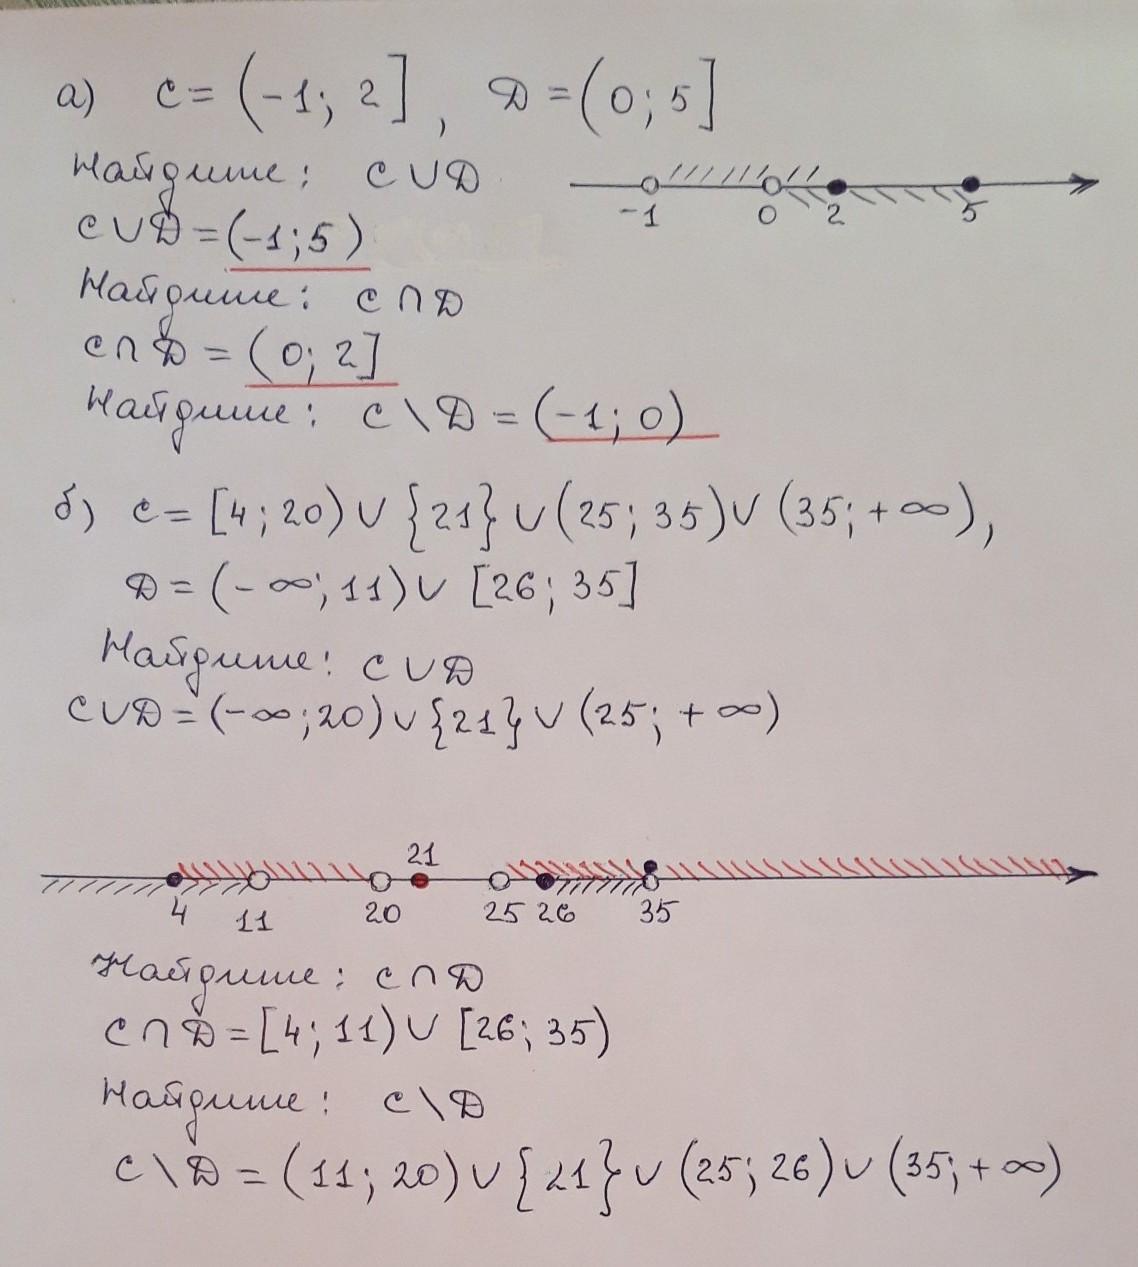 а) C = (-1; 2], D = (0; 5]
Найдите: C∪D
-1 0 2 5
C∪D = (-1; 5)
Найдите: C∩D
C∩D = (0; 2]
Найдите: C\D = (-1; 0)
б) C = [4; 20)∪{21}∪(25; 35)∪(35; +∞),
D = (-∞; 11)∪[26; 35]
Найдите: C∪D
C∪D = (-∞; 20)∪{21}∪(25; +∞)
21
4 11 20 25 26 35
Найдите: C∩D
C∩D = [4; 11)∪[26; 35)
Найдите: C\D
C\D = (11; 20)∪{21}∪(25; 26)∪(35; +∞)